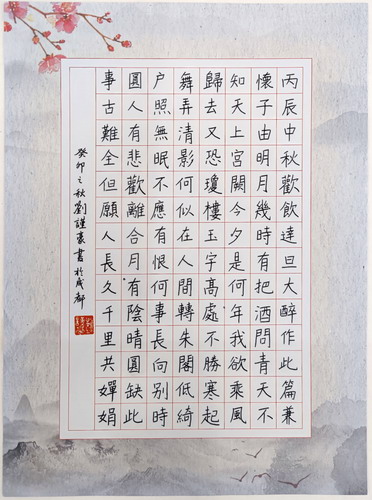 丙辰中秋歡飲達旦大醉作此篇兼
懷子由明月幾時有把酒問青天不
知天上宮闕今夕是何年我欲乘風
歸去又恐瓊樓玉宇高處不勝寒起
舞弄清影何似在人間轉朱閣低綺
户照無眠不應有恨何事長向別時
圓人有悲歡離合月有陰晴圓缺此
事古難全但願人長久千里共嬋娟
癸卯之秋劉謹豪書於成都